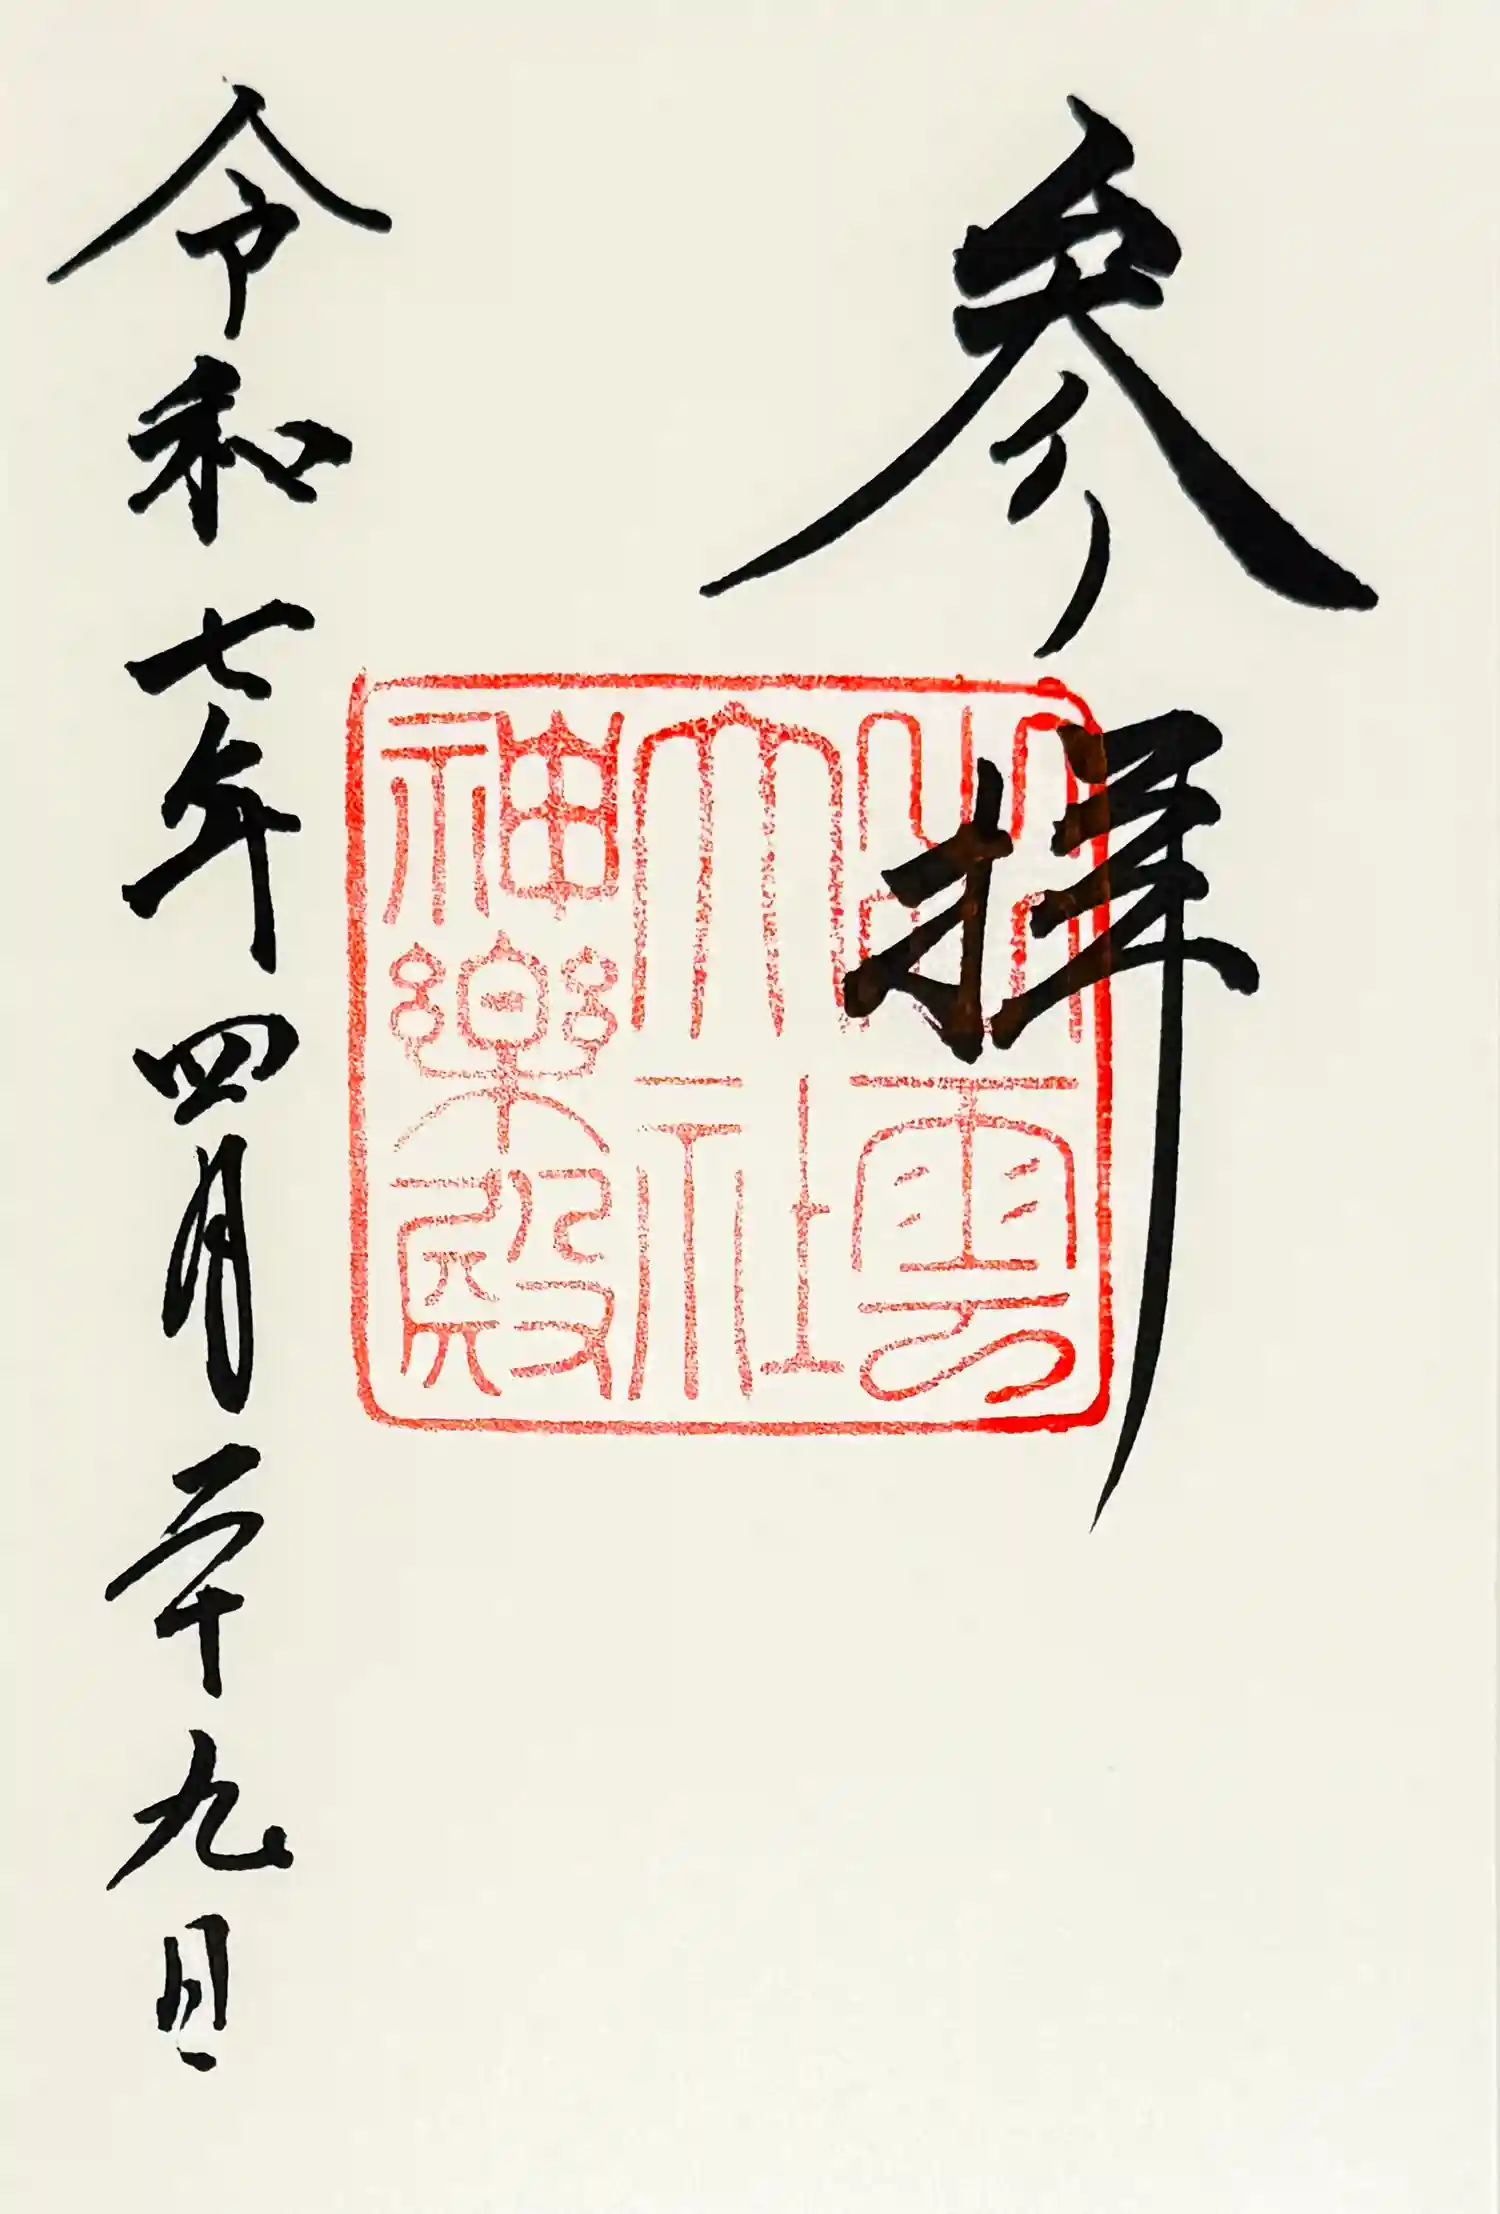 参拝
出雲
大社
神楽殿
令和七年四月二十九日